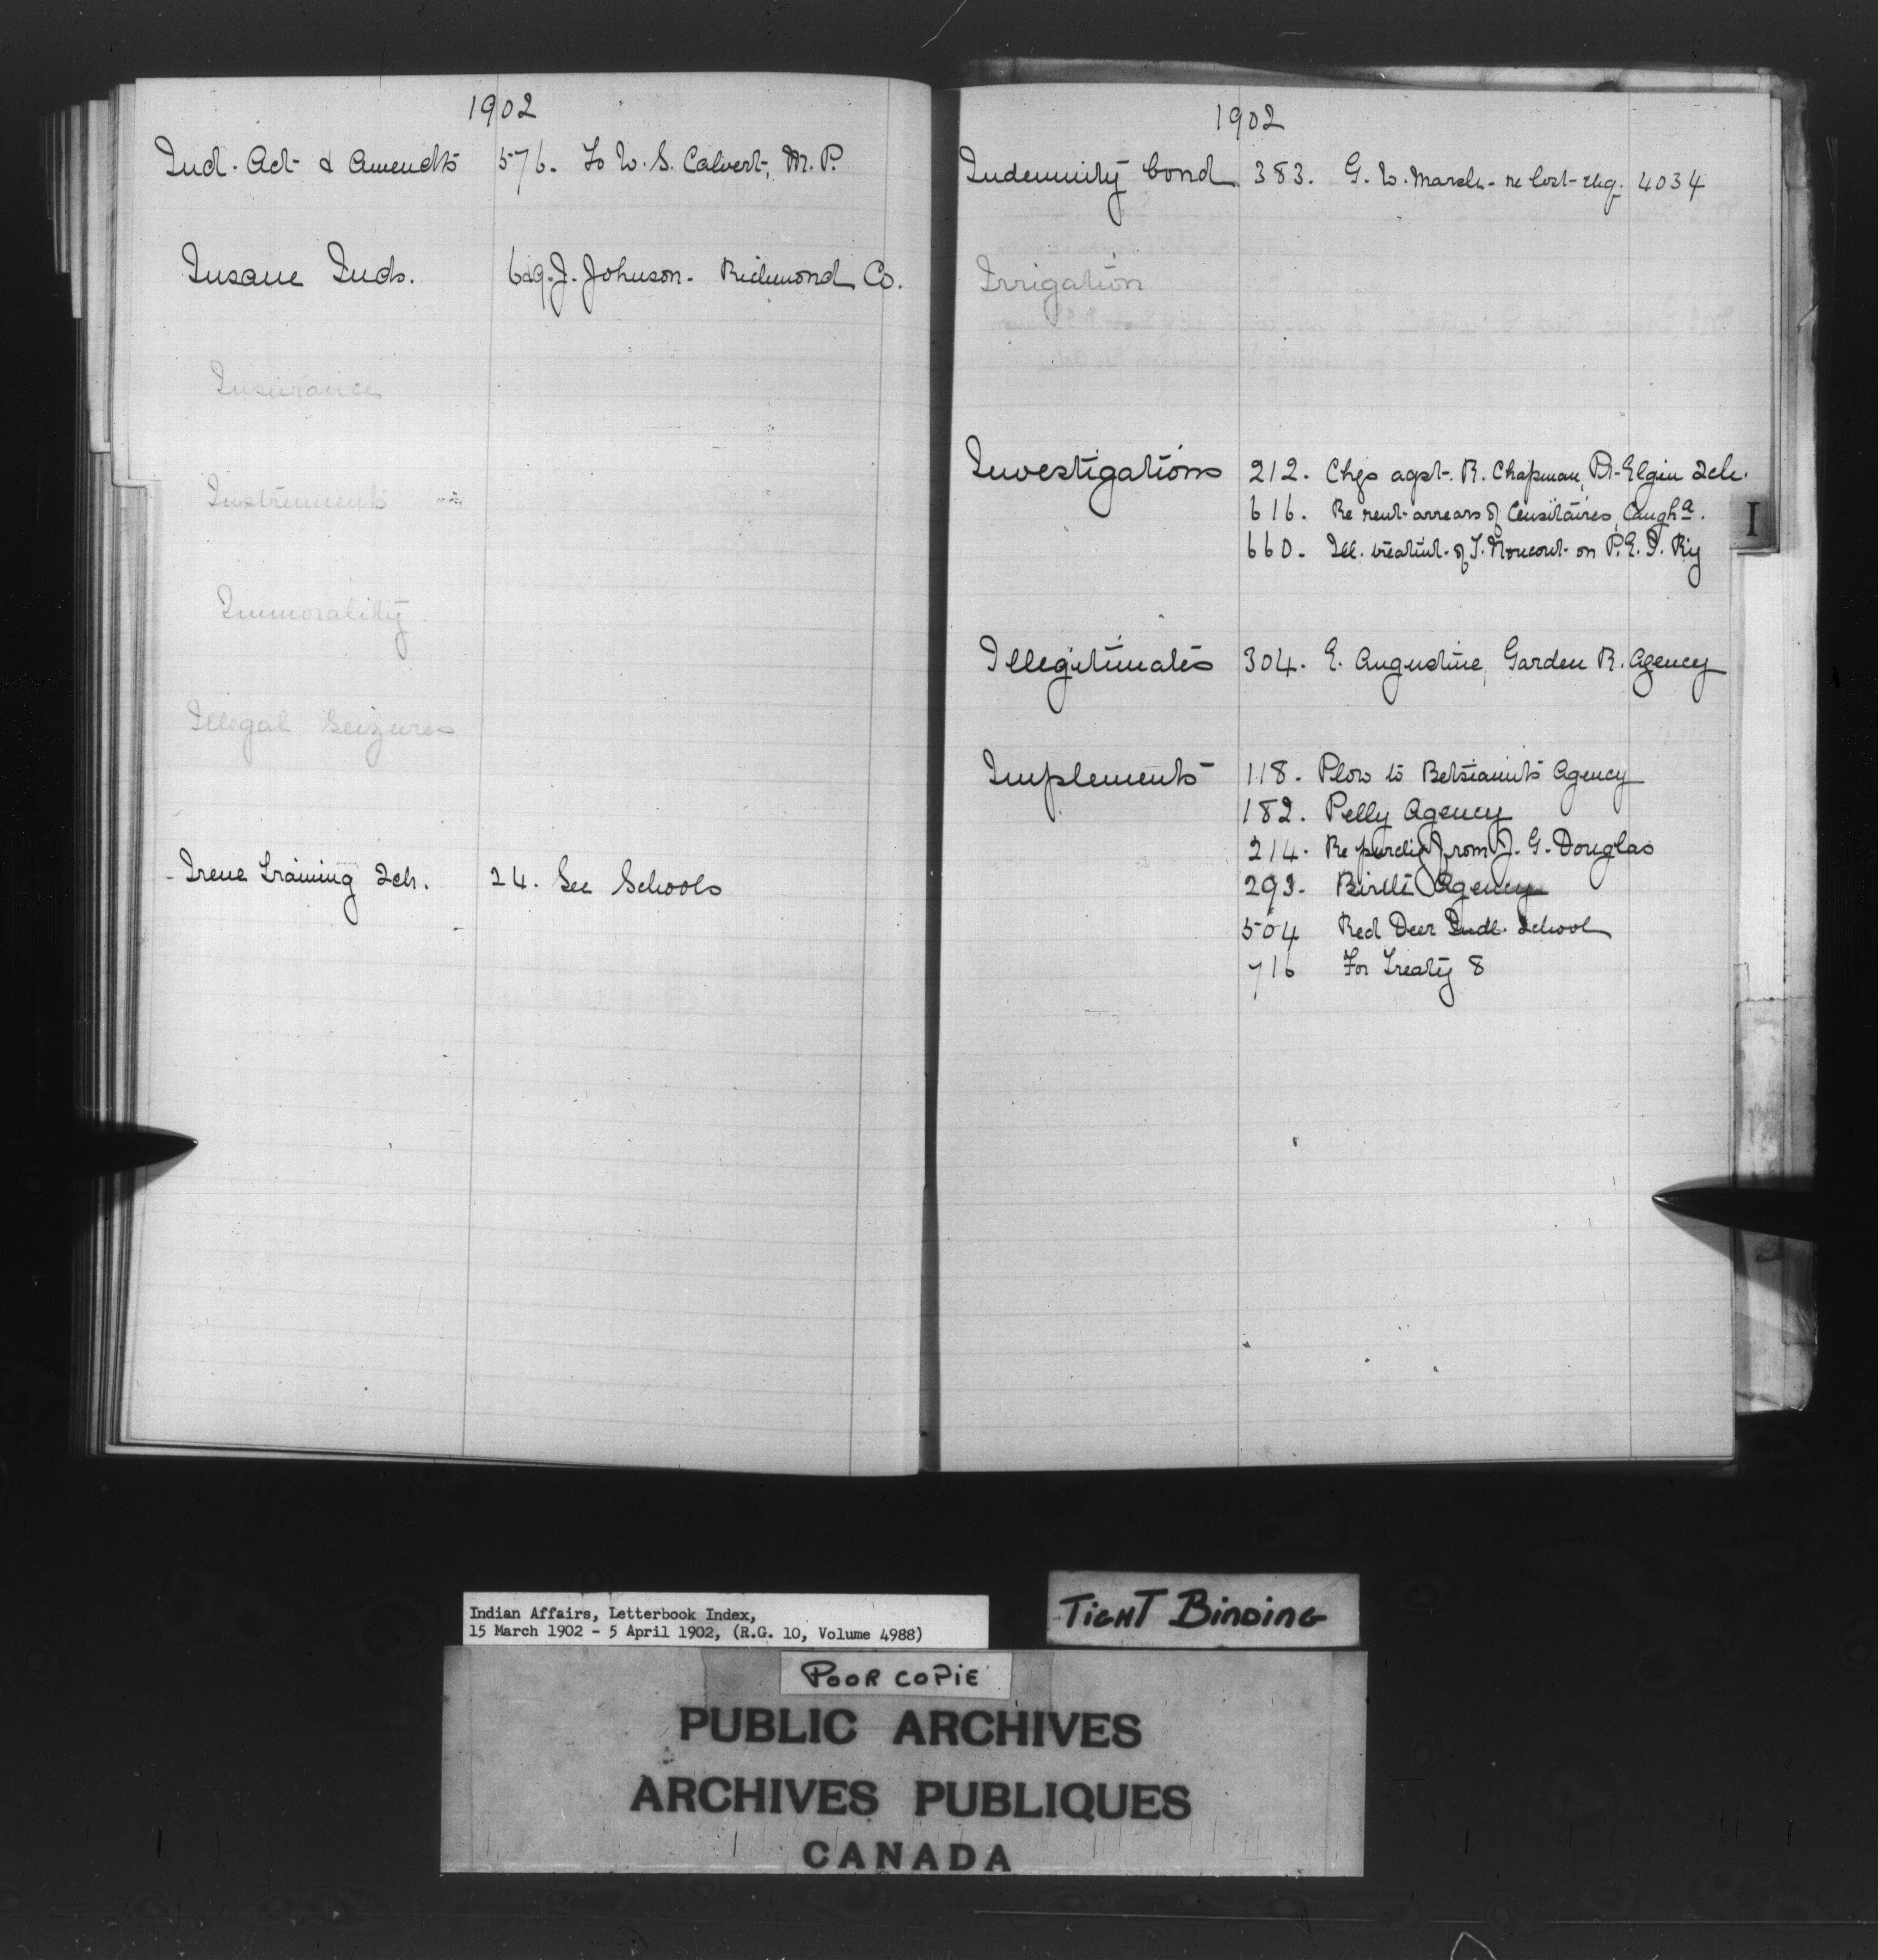 1902
Ind. Act & Amendts 576. To W. S. Calvert, M. P.
Insane Inds. 629. J. Johnson - Richmond Co.
Insurance
Instruments
Immorality
Illegal Seizures
Irene Training Sch. 24. See Schools
1902
Indemnity bond 383. G. W. Marsh - re lost chq. 4034
Irrigation
Investigations 212. Chgs agst. R. Chapman, Pt. Elgin Sch.
616. Re rent arrears of Censitaires, Caugha.
660. Ill. treatmt. of T. on P. E. I. Ry
I
Illegitimates 304. E. Augustine, Garden R. Agency
Implements 118. Plow to Betsiamits Agency
182. Pelly Agency
214. Re purch from J. G. Douglas
293. Birtle Agency
504 Red Deer Indl. School
716 For Treaty 8
Indian Affairs, Letterbook Index,
15 March 1902 - 5 April 1902, (R.G. 10, Volume 4988)
TIGHT BINDING
POOR COPIE
PUBLIC ARCHIVES
ARCHIVES PUBLIQUES
CANADA